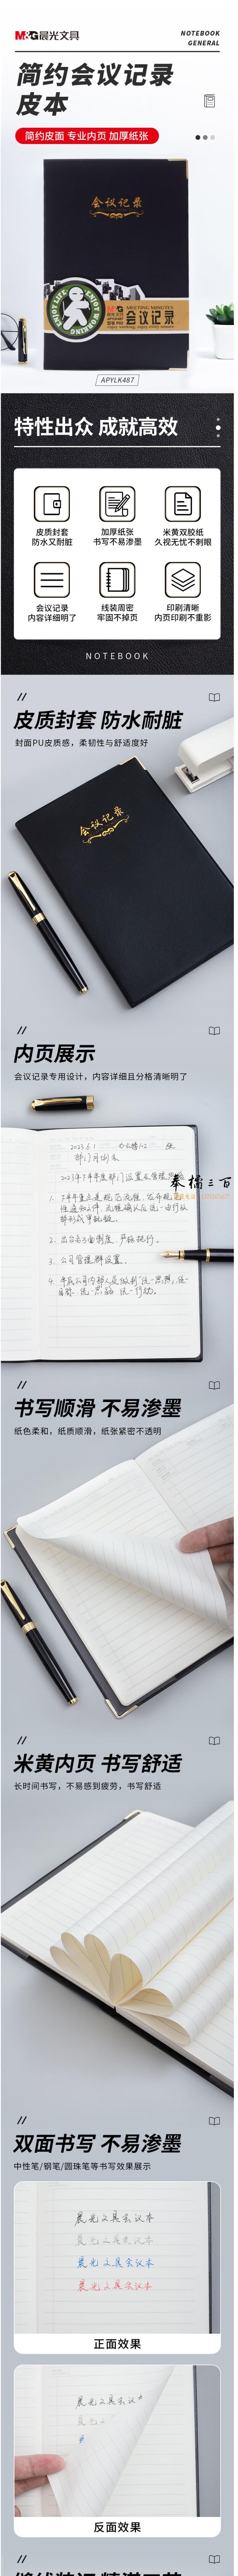 M&G晨光文具
NOTEBOOK
GENERAL
简约会议记录
皮本
简约皮面 专业内页 加厚纸张
会议记录
ENJOY LIFE
ENJOY WORKING
MEETING MINUTES
会议记录
APYLK487
特性出众 成就高效
皮质封套
防水又耐脏
加厚纸张
书写不易渗墨
米黄双胶纸
久视无忧不刺眼
会议记录
内容详细明了
线装周密
牢固不掉页
印刷清晰
内页印刷不重影
NOTEBOOK
皮质封套 防水耐脏
封面PU皮质感，柔韧性与舒适度好
会议记录
内页展示
会议记录专用设计，内容详细且分格清晰明了
2023.6.1
部门月例会
2. 出台各方面制度，严格执行。
3. 公司管理群设置。
书写顺滑 不易渗墨
纸色柔和，纸质顺滑，纸张紧密不透明
米黄内页 书写舒适
长时间书写，不易感到疲劳，书写舒适
双面书写 不易渗墨
中性笔/钢笔/圆珠笔等书写效果展示
晨光文具会议本
晨光文具会议本
晨光文具会议本
晨光文具会议本
正面效果
晨光文具会议
晨光文
反面效果